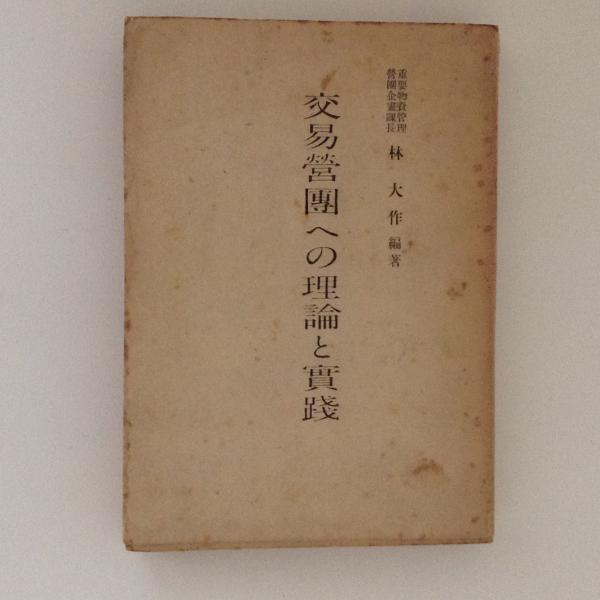 重要物資管理
營團企畫課長
林大作編著
交易營團への理論と實踐